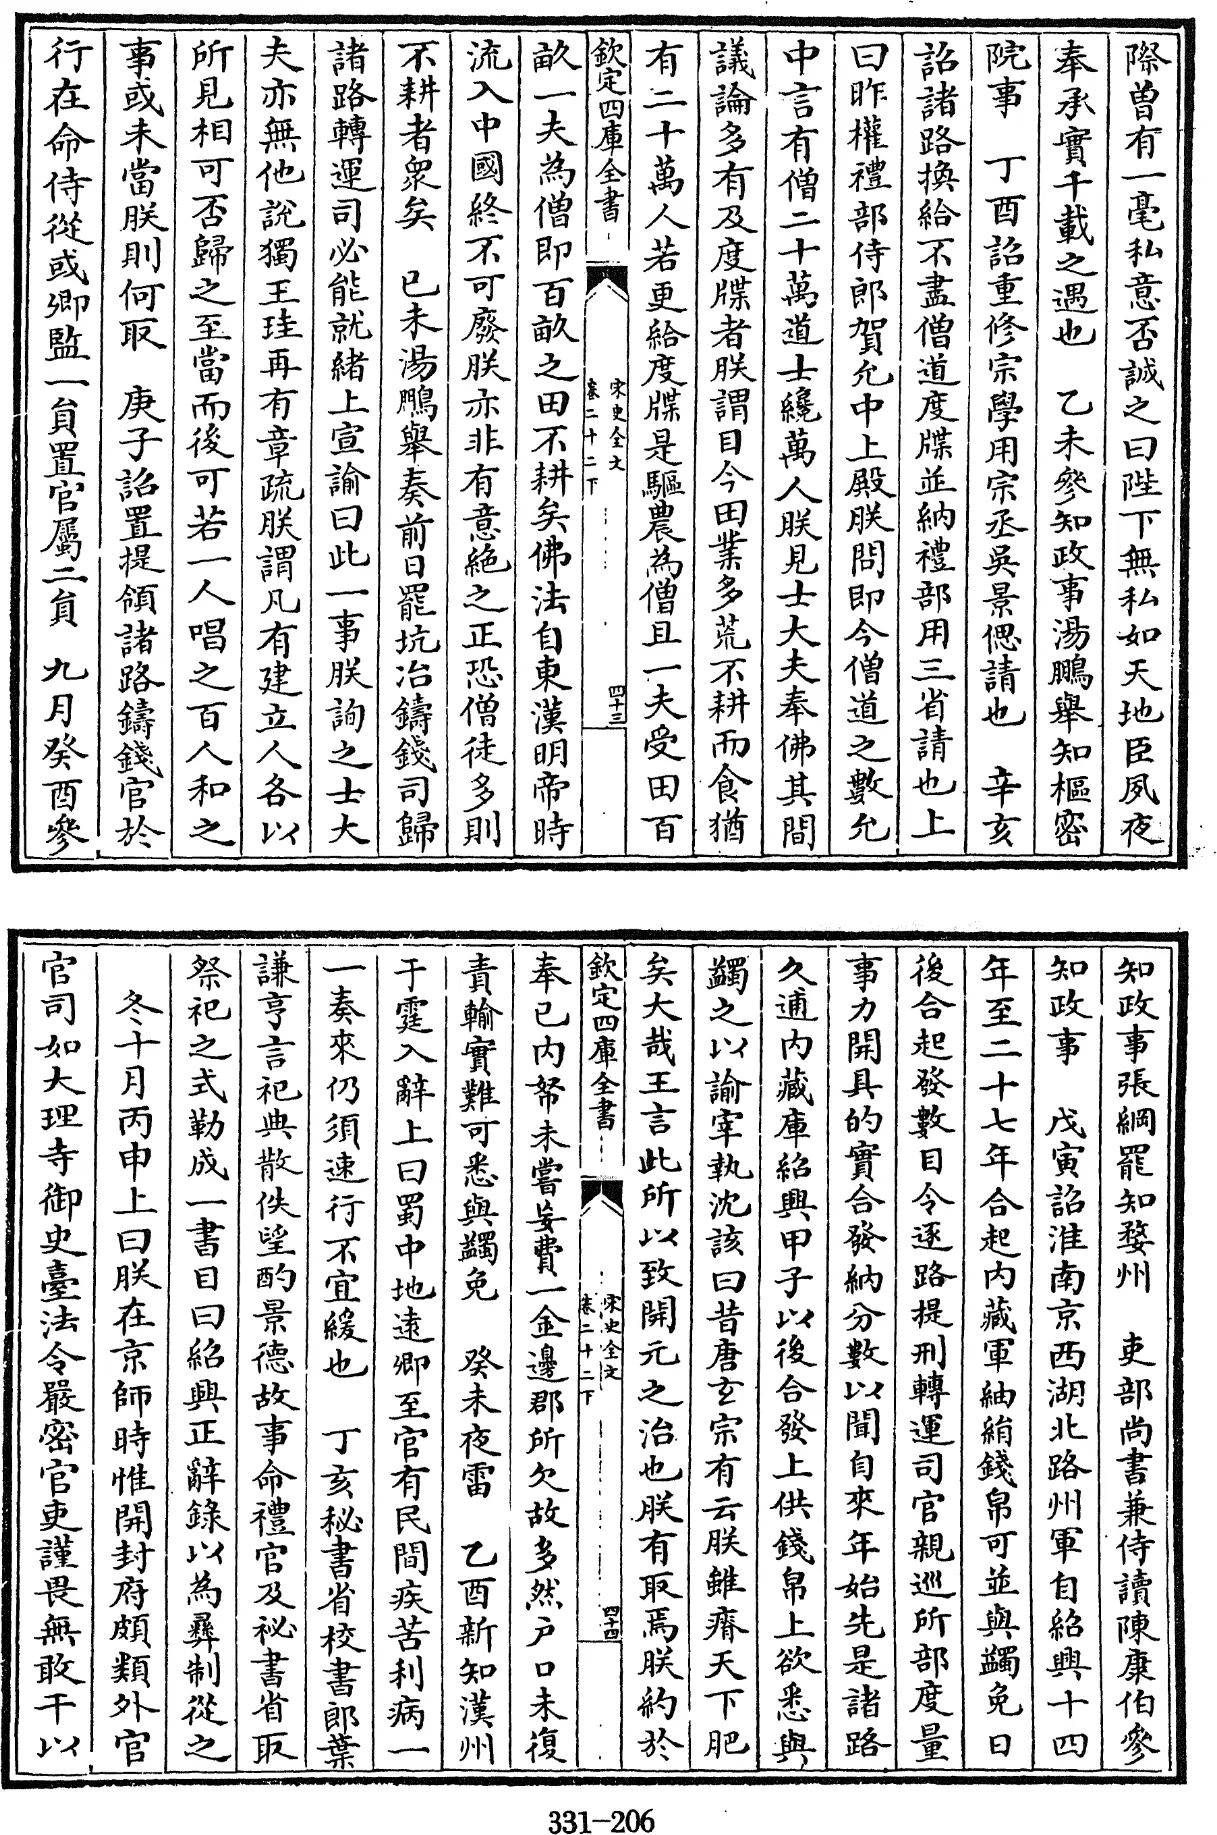 際曾有一毫私意否誠之曰陛下無私如天地臣夙夜
奉承實千載之遇也　乙未參知政事湯鵬舉知樞密
院事　丁酉詔重修宗學用宗丞吳景偲請也　辛亥
詔諸路換給不盡僧道度牒並納禮部用三省請也上
曰昨權禮部侍郎賀允中上殿朕問即今僧道之數允
中言有僧二十萬道士纔萬人朕見士大夫奉佛其間
議論多有及度牒者朕謂目今田業多荒不耕而食猶
有二十萬人若更給度牒是驅農為僧且一夫受田百
欽定四庫全書
宋史全文
卷二十二下
四十三
畝一夫為僧即百畝之田不耕矣佛法自東漢明帝時
流入中國終不可廢朕亦非有意絶之正恐僧徒多則
不耕者衆矣　已未湯鵬舉奏前日罷坑冶鑄錢司歸
諸路轉運司必能就緒上宣諭曰此一事朕詢之士大
夫亦無他說獨王珪再有章疏朕謂凡有建立人各以
所見相可否歸之至當而後可若一人唱之百人和之
事或未當朕則何取　庚子詔置提領諸路鑄錢官於
行在命侍從或卿監一員置官屬二員　九月癸酉參
知政事張綱罷知婺州　吏部尚書兼侍讀陳康伯參
知政事　戊寅詔淮南京西湖北路州軍自紹興十四
年至二十七年合起內藏軍紬絹錢帛可並與蠲免日
後合起發數目令逐路提刑轉運司官親巡所部度量
事力開具的實合發納分數以聞自來年始先是諸路
久逋內藏庫紹興甲子以後合發上供錢帛上欲悉與
蠲之以諭宰執沈該曰昔唐玄宗有云朕雖瘠天下肥
矣大哉王言此所以致開元之治也朕有取焉朕約於
欽定四庫全書
宋史全文
卷二十二下
四十四
奉已內帑未嘗妄費一金邊郡所欠故多然户口未復
責輸實難可悉與蠲免　癸未夜雷　乙酉新知漢州
于霆入辭上曰蜀中地遠卿至官有民間疾苦利病一
一奏來仍須速行不宜緩也　丁亥秘書省校書郎葉
謙亨言祀典散佚望酌景德故事命禮官及祕書省取
祭祀之式勒成一書目曰紹興正辭錄以為彝制從之
冬十月丙申上曰朕在京師時惟開封府頗類外官
官司如大理寺御史臺法令嚴密官吏謹畏無敢干以
331-206